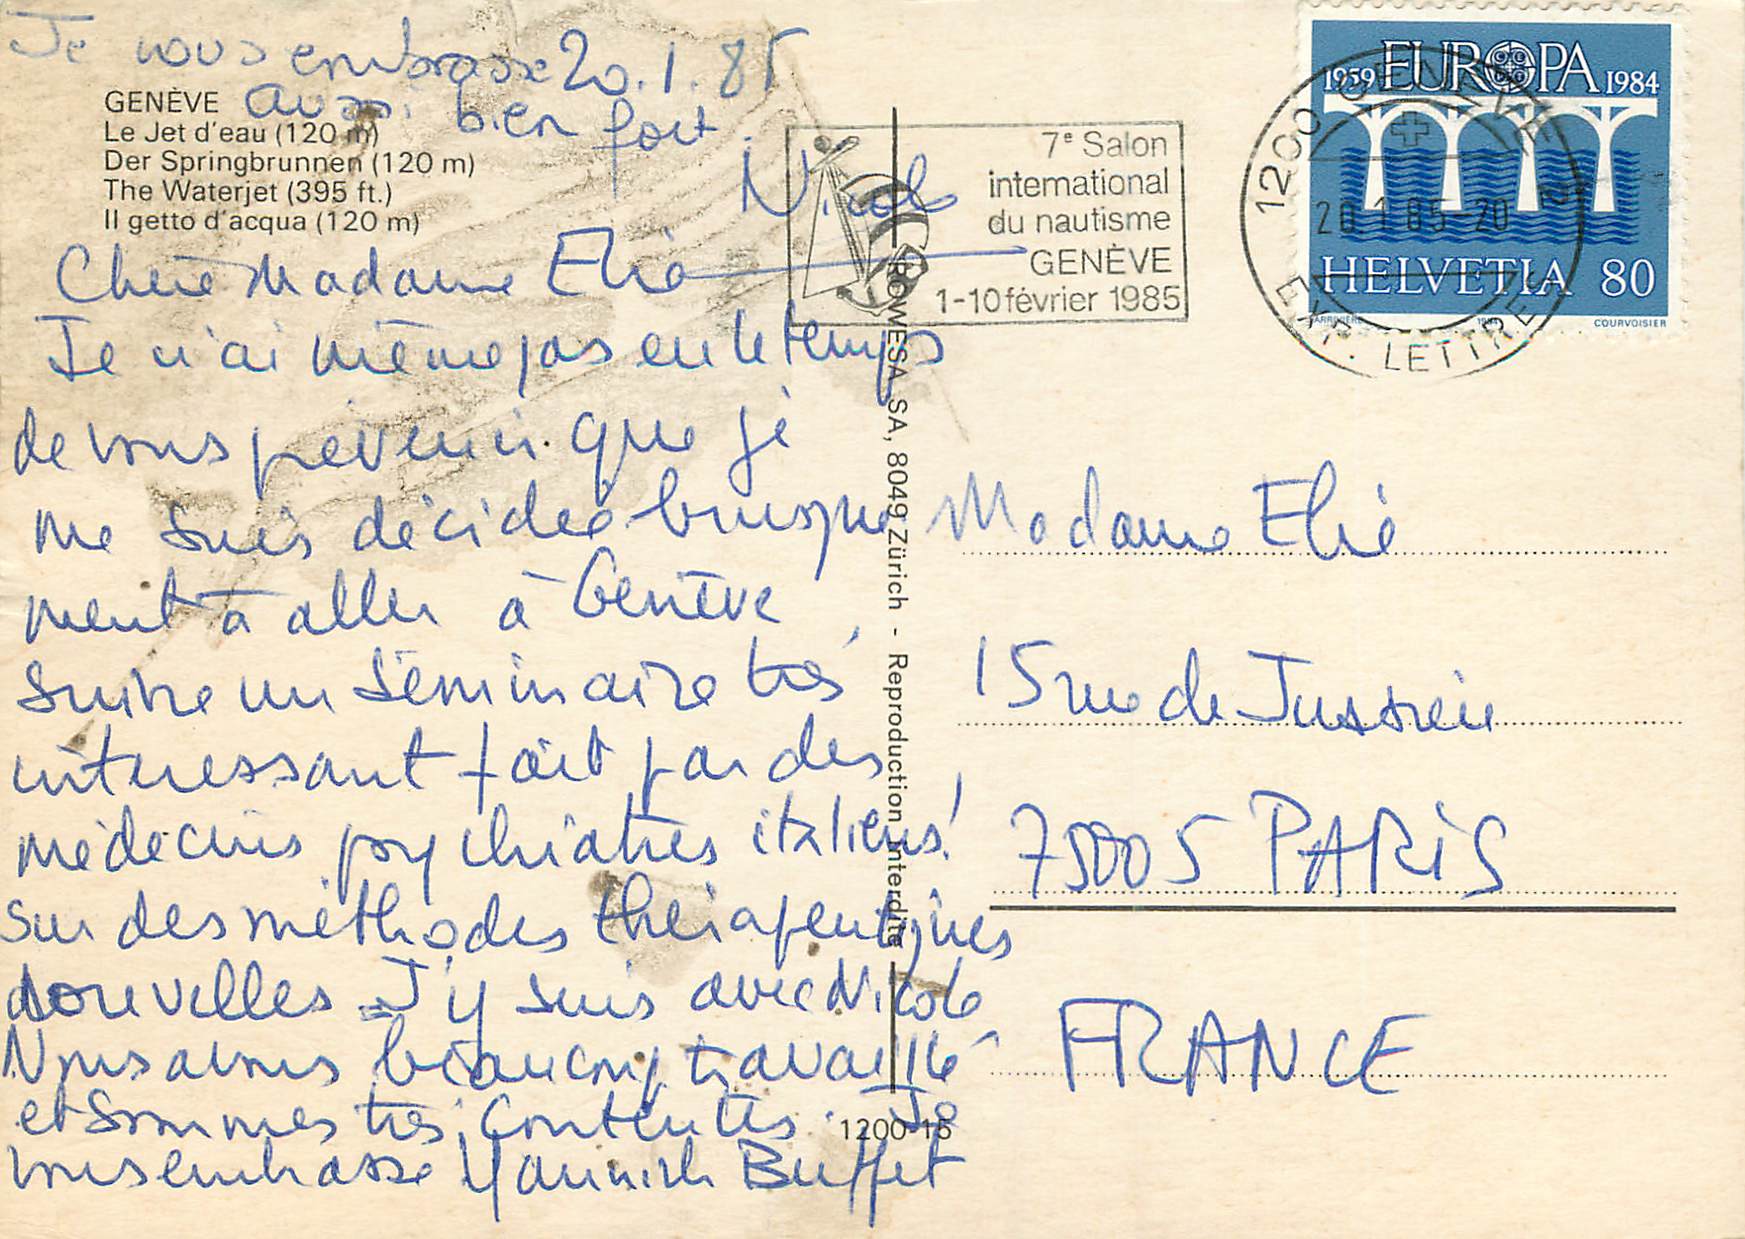 Je vous embrasse 20.1.85
aussi bien fort.
Nicole
GENÈVE
Le Jet d'eau (120 m)
Der Springbrunnen (120 m)
The Waterjet (395 ft.)
Il getto d'acqua (120 m)
Chère Madame Elie
Je n'ai même pas eu le temps
de vous prévenir que je
me suis décidée brusque
ment à aller à Genève
suivre un séminaire très
intéressant fait par des
médecins psychiatres italiens
sur des méthodes thérapeutiques
nouvelles. J'y suis avec Nicole
Nous avons beaucoup travaillé
et sommes très contentes. Je
vous embrasse Yannick Buffet
7e Salon
international
du nautisme
GENÈVE
1-10 février 1985
1200 GENÈVE 2
20.1.85-20
EXP. LETTRES
1959 EUROPA 1984
HELVETIA 80
1984
COURVOISIER
ROWESA SA, 8049 Zürich - Reproduction interdite
1200-15
Madame Elie
15 rue de Jussieu
75005 PARIS
FRANCE